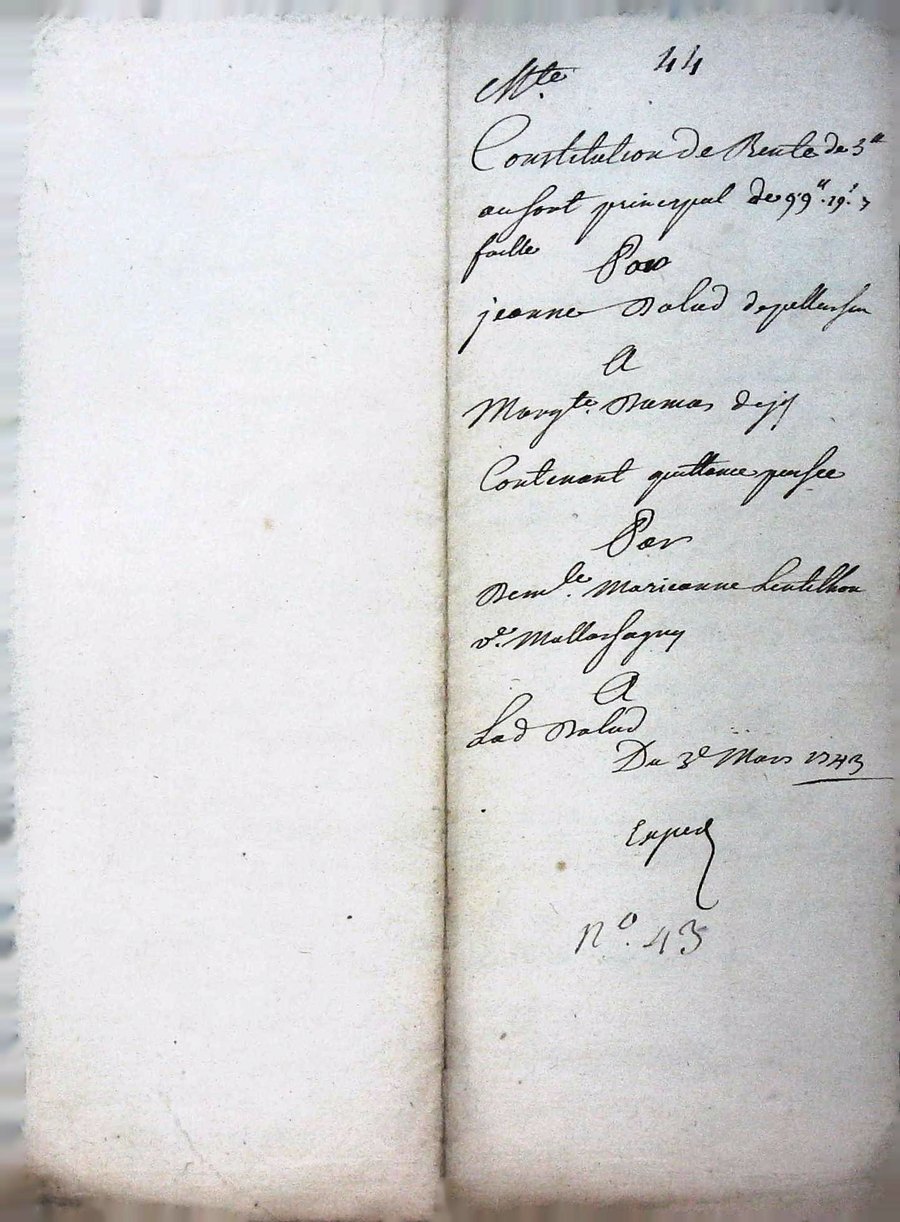 44
Mte.
Constitution de Rente de 5tt
au sort principal de 99tt. 19s. 
faitte Par
jeanne Balud
A
Margte. Dumas
Contenant quittance passée
Par
Demlle. Marieanne Lentilhon
ve. Mallassagny
A
Lad Balud
Du 3e Mars 1743
Exped
no. 43